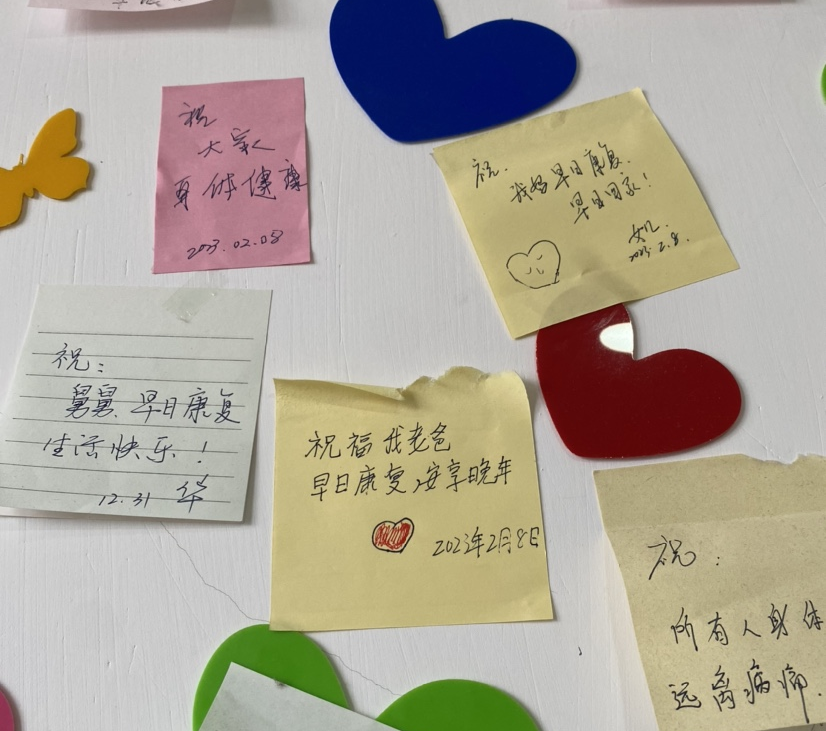 祝
大家
身体健康
2023.02.08
祝.
我妈早日康复.
早日回家!
2023.2.8.
祝:
舅舅、早日康复
生活快乐!
12.31 华
祝福我老爸
早日康复,安享晚年
2023年2月8日
祝:
所有人身体
远离病痛.